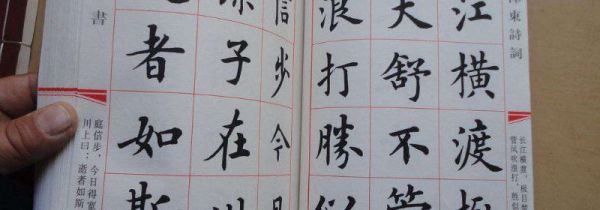 東詩詞
江横渡
天舒不管
浪打勝似
信步今日
子在川
者如斯
書
长江横渡，极目
管风吹浪打，胜似
庭信步，今日得宽
川上曰：逝者如斯